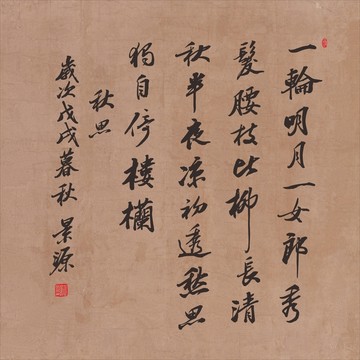 一輪明月一女郎秀
髮腰枝比柳長清
秋半夜凉初透愁思
獨自倚樓欄
秋思
歲次戊戌暮秋景源